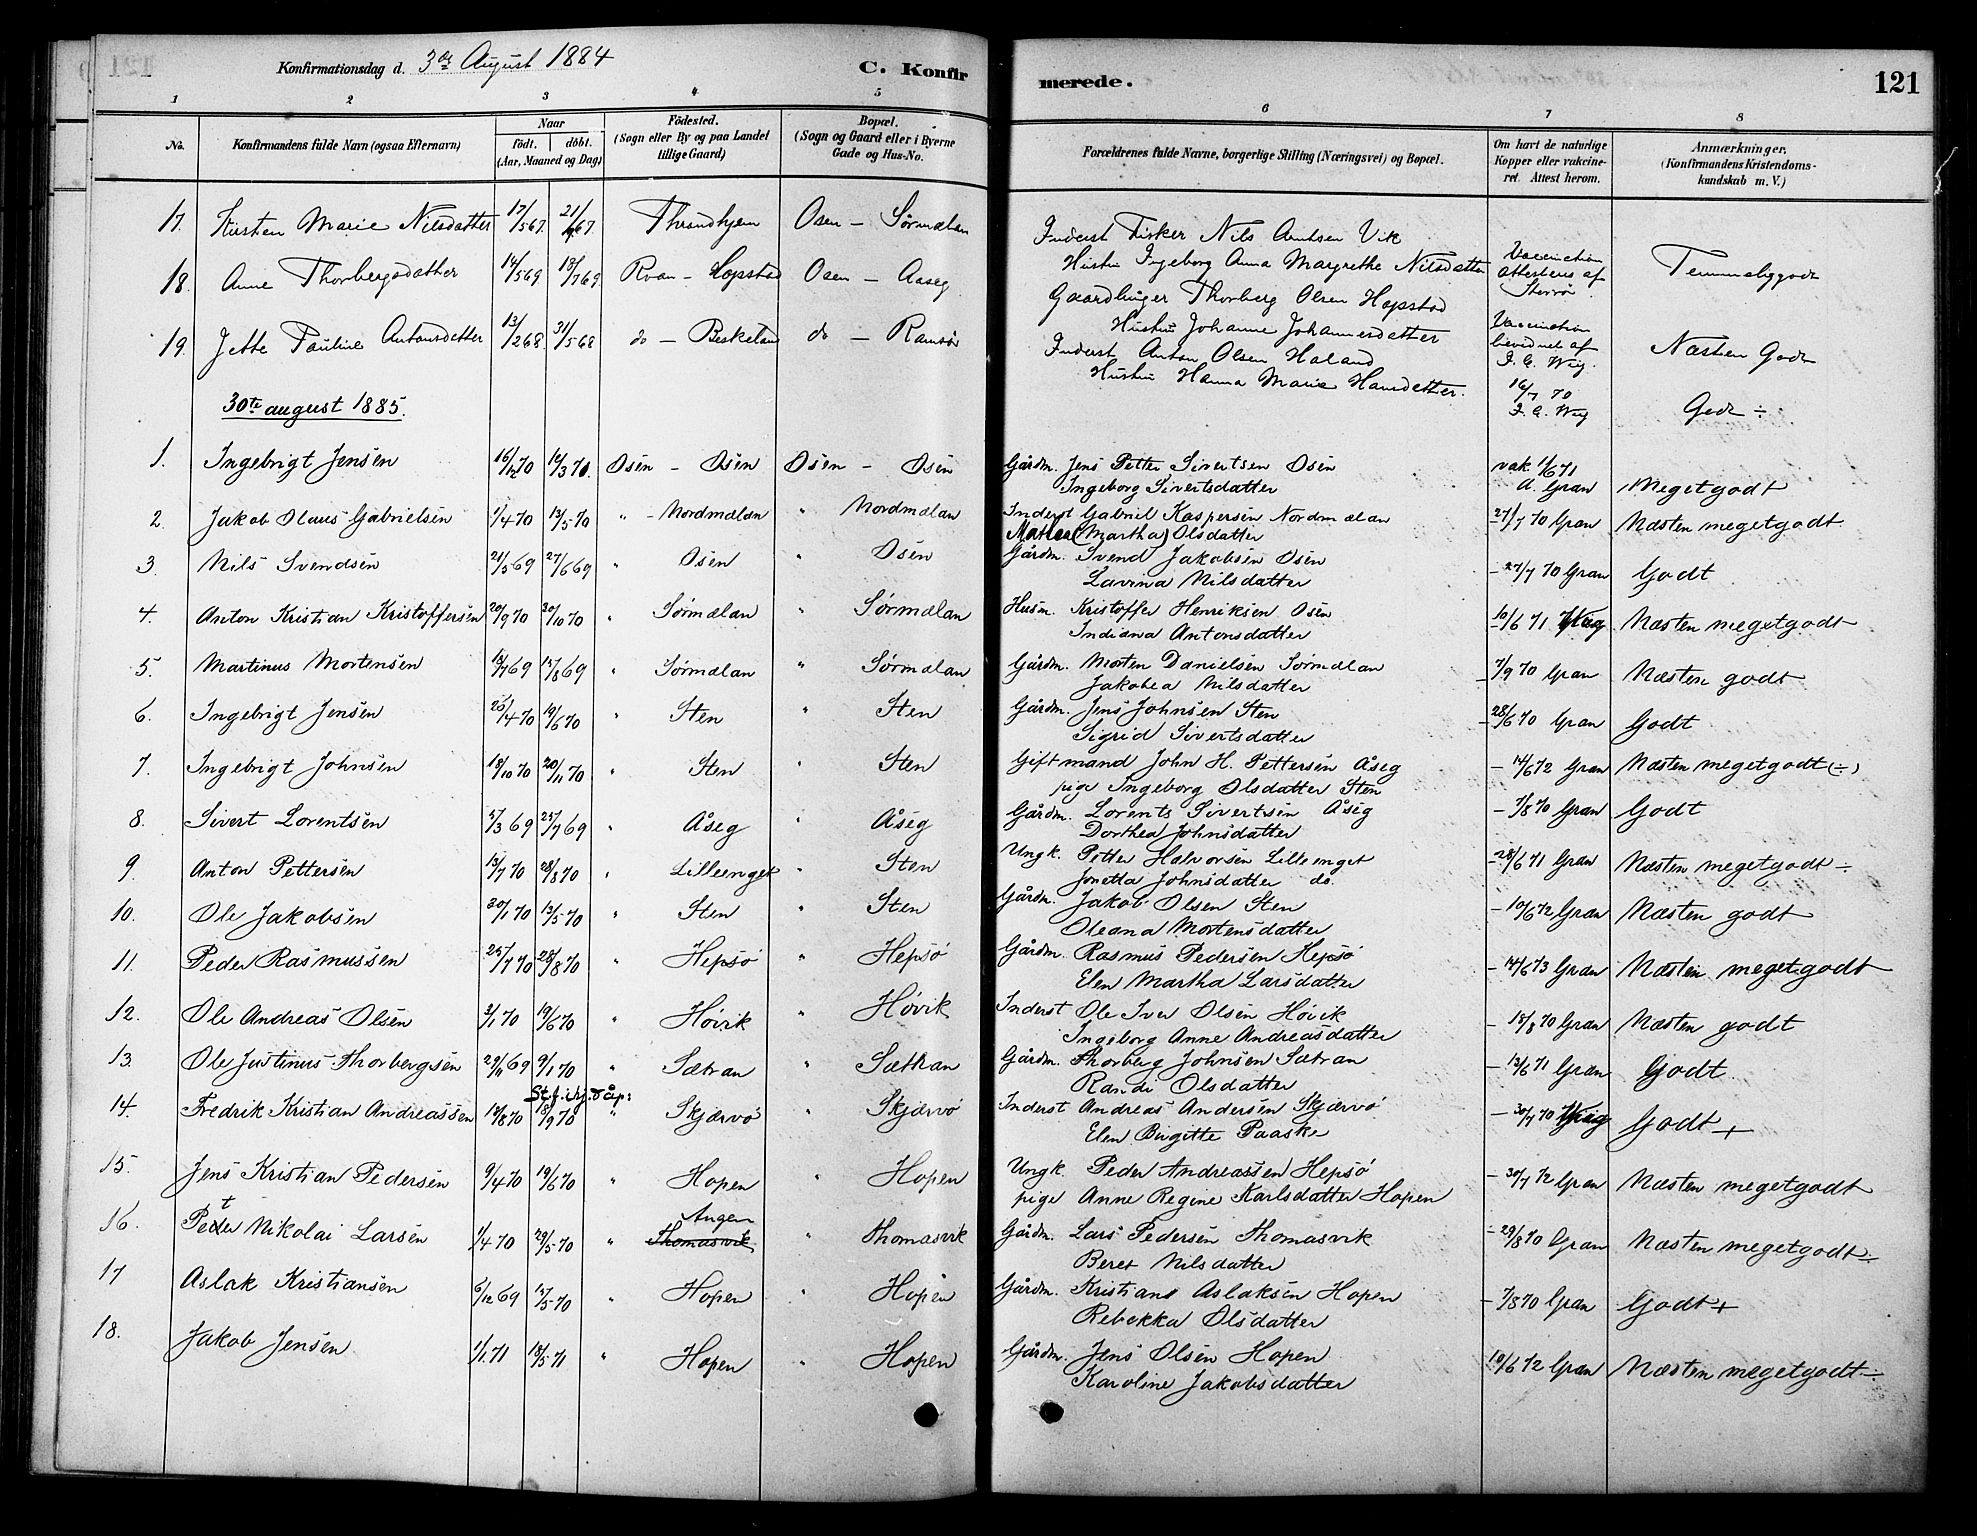 Konfirmationsdag d. 3die August 1884 C. Konfir
merede. 121
1 2 3 4 5 6 7 8
No. Konfirmandens fulde Navn (ogsaa Efternavn) Naar født. døbt. (Aar, Maaned og Dag) Fødested. (Sogn eller By og paa Landet tillige Gaard) Bopæl. (Sogn og Gaard eller i Byerne Gade og Hus-No. Forældrenes fulde Navne, borgerlige Stilling (Næringsvei) og Bopæl. Om havt de naturlige Kopper eller vakcineret. Attest herom. Anmærkninger. (Konfirmandens Kristendomskundskab m. V.)
17. Kirsten Marie Nilsdatter 17/5 67. 21/ 67. Throndhjem Osen — Sørmælan Inderst Fisker Nils Arntsen Vik
Hustru Ingeborg Anna Margrethe Nilsdatter Vaccination attesteres af Temmeliggodt
18. Anne Thorbergsdatter 14/5 69 18/7 69 Roan — Hopstad Osen — Aaseg Gaardbruger Thorberg Olsen Hopstad
Hustru Johanne Johannesdatter Vaccination bevidnet af Næsten Godt
19. Jette Pauline Antonsdatter 13/2 68. 31/5 68 do — Beskeland do — Ramsø Inderst Anton Olsen Haland
Hustru Hanna Marie Hansdatter. 16/7 70 Godt ÷
30te august 1885.
1. Ingebrigt Jensen 16/12 70 12/3 70. Osen — Osen Osen — Osen Gårdm. Jens Petter Sivertsen Osen vak. 1/6 71 A. Gran Megetgodt
Ingeborg Sivertsdatter
2. Jakob Olaus Gabrielsen 1/4 70 13/5 70 " — Nordmælan " Nordmælan Inderst Gabriel Kaspersen Nordmælan 27/7 70 Gran Næsten megetgodt
Mathea (Martha) Olsdatter
3. Nils Svendsen 21/5 69 27/6 69 " Osen " Osen Gårdm. Svend Jakobsen Osen — 27/7 70 Gran Godt
Lavina Nilsdatter
4. Anton Kristian Kristoffersen 20/9 70 30/10 70 " Sørmælan " Sørmælan Husm. Kristoffer Henriksen Osen 10/6 71 Næsten megetgodt
Indiana Antonsdatter
5. Martinus Mortensen 13/7 69 15/8 69 " Sørmælan " Sørmælan Gårdm. Morten Danielsen Sørmælan — 7/9 70 Gran Næsten godt
Jakobea Nilsdatter
6. Ingebrigt Jensen 25/4 70 19/6 70 " Sten " Sten Gårdm. Jens Johnsen Sten — 28/6 70 Gran Godt
Sigrid Sivertsdatter
7. Ingebrigt Johnsen 18/10 70 20/11 70 " Sten " Sten Giftmand John H. Pettersen Åseg — 14/6 72 Gran Næsten megetgodt (÷)
pige Ingeborg Olsdatter Sten
8. Sivert Lorentsen 5/3 69 25/7 69 " Åseg " Åseg Gårdm. Lorents Sivertsen Åseg — 7/8 70 Gran Godt
Dorthea Johnsdatter
9. Anton Pettersen 13/7 70 28/8 70 " Lilleenget " Sten Ungk. Petter Halvorsen Lilleenget — 28/6 71 Gran Næsten megetgodt ÷
Jonetta Johnsdatter do.
10. Ole Jakobsen 30/1 70 13/5 70 " Sten " Sten Gårdm. Jakob Olsen Sten — 10/6 72 Gran Næsten godt
Oleana Mortensdatter
11. Peder Rasmussen 25/7 70 28/8 70 " Hepsø " Hepsø Gårdm. Rasmus Pedersen Hepsø — 14/6 73 Gran Næsten megetgodt
Elen Martha Larsdatter
12. Ole Andreas Olsen 3/1 70 19/6 70 " Høvik " Høvik Inderst Ole Iver Olsen Høvik — 15/8 70 Gran Næsten godt
Ingeborg Anne Andreasdatter
13. Ole Justinus Thorbergsen 29/11 69 9/1 70 " Sætran " Sætran Gårdm. Thorberg Johnsen Sætran — 13/6 71 Gran Godt
Randi Olsdatter
14. Fredrik Kristian Andreassen 12/8 70 18/9 70 " Skjærvø " Skjærvø Inderst Andreas Andersen Skjærvø — 30/7 70 Godt +
Elen Birgitte Paaske
15. Jens Kristian Pedersen 9/4 70 19/6 70 " Hopen " Hopen Ungk. Peder Andreassen Hepsø — 30/7 72 Gran Næsten megetgodt
pige Anne Regine Karlsdatter Hopen
16. Petter Nikolai Larsen 1/4 70 29/5 70 " Angen Thomasvik " Thomasvik Gårdm. Lars Pedersen Thomasvik — 29/8 70 Gran Næsten megetgodt ÷
Beret Nilsdatter
17 Aslak Kristiansen 6/12 69 15/5 70 " Hopen " Hopen Gårdm. Kristians Aslaksen Hopen — 7/8 70 Gran Godt +
Rebekka Olsdatter
18. Jakob Jensen 1/1 71 18/5 71 " Hopen " Hopen Gårdm. Jens Olsen Hopen 10/6 72 Gran Næsten megetgodt ÷
Karoline Jakobsdatter